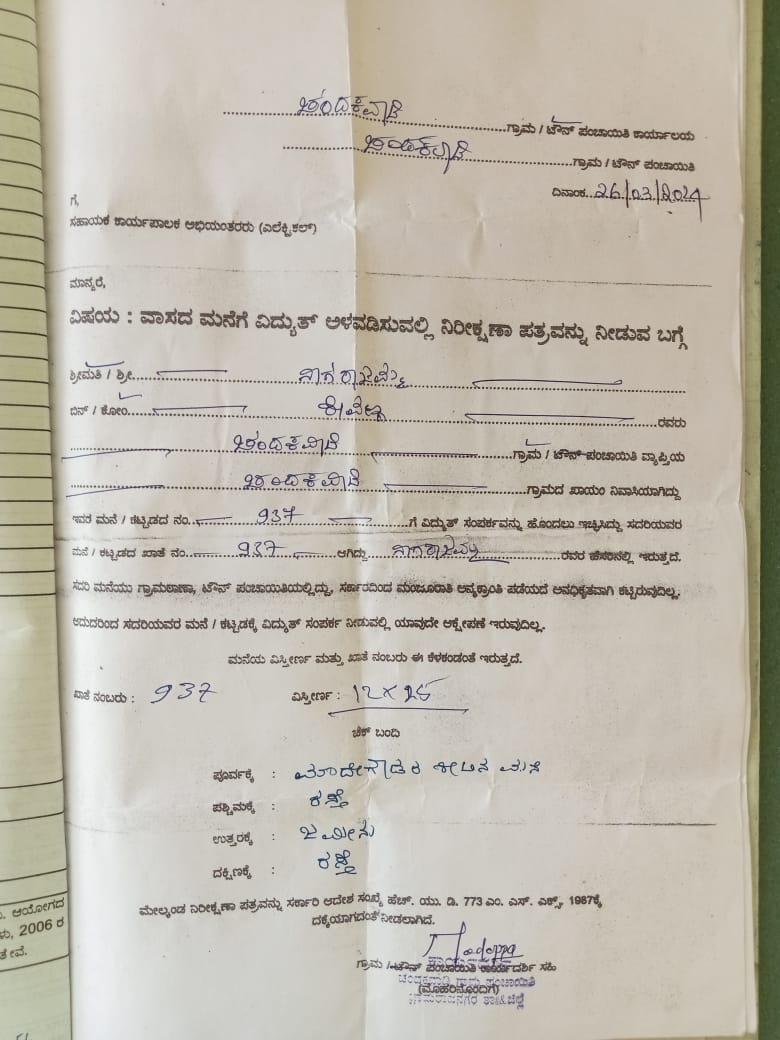 ಚಂದಕವಾಡಿ ಗ್ರಾಮ / ಟೌನ್ ಪಂಚಾಯಿತಿ ಕಾರ್ಯಾಲಯ
ಚಂದಕವಾಡಿ ಗ್ರಾಮ / ಟೌನ್ ಪಂಚಾಯಿತಿ
ದಿನಾಂಕ..26/03/2024
ಗೆ,
ಸಹಾಯಕ ಕಾರ್ಯಪಾಲಕ ಅಭಿಯಂತರರು (ಎಲೆಕ್ಟ್ರಿಕಲ್)
ಮಾನ್ಯರೆ,
ವಿಷಯ : ವಾಸದ ಮನೆಗೆ ವಿದ್ಯುತ್ ಅಳವಡಿಸುವಲ್ಲಿ ನಿರೀಕ್ಷಣಾ ಪತ್ರವನ್ನು ನೀಡುವ ಬಗ್ಗೆ
ಶ್ರೀಮತಿ / ಶ್ರೀ ನಾಗರಾಜಮ್ಮ
ಬಿನ್ / ಕೋಂ ರವರು
ಚಂದಕವಾಡಿ ಗ್ರಾಮ / ಟೌನ್ ಪಂಚಾಯಿತಿ ವ್ಯಾಪ್ತಿಯ
ಚಂದಕವಾಡಿ ಗ್ರಾಮದ ಖಾಯಂ ನಿವಾಸಿಯಾಗಿದ್ದು
ಇವರ ಮನೆ / ಕಟ್ಟಡದ ನಂ. 937 ಗೆ ವಿದ್ಯುತ್ ಸಂಪರ್ಕವನ್ನು ಹೊಂದಲು ಇಚ್ಛಿಸಿದ್ದು ಸದರಿಯವರ
ಮನೆ / ಕಟ್ಟಡದ ಖಾತೆ ನಂ. 937 ಆಗಿದ್ದು ನಾಗರಾಜಮ್ಮ ರವರ ಹೆಸರಿನಲ್ಲಿ ಇರುತ್ತದೆ.
ಸದರಿ ಮನೆಯು ಗ್ರಾಮಠಾಣಾ, ಟೌನ್ ಪಂಚಾಯಿತಿಯಲ್ಲಿದ್ದು, ಸರ್ಕಾರದಿಂದ ಮಂಜೂರಾತಿ ಅನ್ಯಕ್ರಾಂತಿ ಪಡೆಯದೆ ಅನಧಿಕೃತವಾಗಿ ಕಟ್ಟಿರುವುದಿಲ್ಲ.
ಆದುದರಿಂದ ಸದರಿಯವರ ಮನೆ / ಕಟ್ಟಡಕ್ಕೆ ವಿದ್ಯುತ್ ಸಂಪರ್ಕ ನೀಡುವಲ್ಲಿ ಯಾವುದೇ ಆಕ್ಷೇಪಣೆ ಇರುವುದಿಲ್ಲ.
ಮನೆಯ ವಿಸ್ತೀರ್ಣ ಮತ್ತು ಖಾತೆ ನಂಬರು ಈ ಕೆಳಕಂಡಂತೆ ಇರುತ್ತದೆ.
ಖಾತೆ ನಂಬರು : 937 ವಿಸ್ತೀರ್ಣ : 12 x 25
ಚೆಕ್ ಬಂದಿ
ಪೂರ್ವಕ್ಕೆ : ಮಾದೇಗೌಡರ ಮನೆ
ಪಶ್ಚಿಮಕ್ಕೆ : ರಸ್ತೆ
ಉತ್ತರಕ್ಕೆ : ಜಮೀನು
ದಕ್ಷಿಣಕ್ಕೆ : ರಸ್ತೆ
ಮೇಲ್ಕಂಡ ನಿರೀಕ್ಷಣಾ ಪತ್ರವನ್ನು ಸರ್ಕಾರಿ ಆದೇಶ ಸಂಖ್ಯೆ ಹೆಚ್. ಯು. ಡಿ. 773 ಎಂ. ಎಸ್. ಎಕ್ಸ್, 1987ಕ್ಕೆ
ದಕ್ಕೆಯಾಗದಂತೆ ನೀಡಲಾಗಿದೆ.
Madappa
ಗ್ರಾಮ / ಟೌನ್ ಪಂಚಾಯಿತಿ ಕಾರ್ಯದರ್ಶಿ ಸಹಿ
ಚಂದಕವಾಡಿ ಗ್ರಾಮ ಪಂಚಾಯಿತಿ
(ಮೊಹರಿನೊಂದಿಗೆ)
ಚಾಮರಾಜನಗರ ತಾ&ಜಿಲ್ಲೆ
ಆಯೋಗದ
2006 ರ